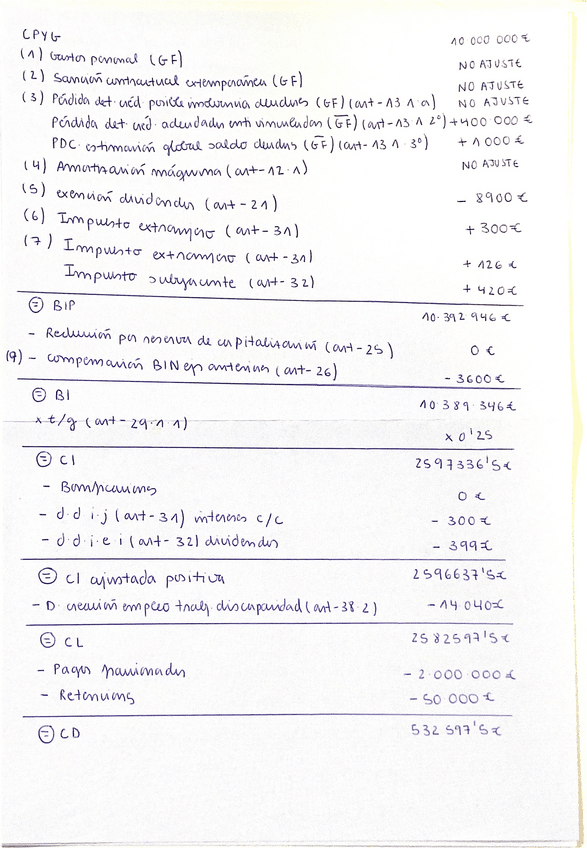 CPYG 10 000 000 €
(1) Gastos personal (GF) NO AJUSTE
(2) Sanción contractual extemporánea (GF) NO AJUSTE
(3) Pérdida det. créd. posible insolvencia deudores (GF) (art-13.1.a) NO AJUSTE
Pérdida det. créd. adeudados enti. vinculadas (GF) (art-13.1.2º) +400 000 €
PDC estimación global saldo deudores (GF) (art-13.1.3º) + 1000 €
(4) Amortización máquina (art-12.1) NO AJUSTE
(5) exención dividendos (art-21) - 8900 €
(6) Impuesto extranjero (art-31) + 300 €
(7) Impuesto extranjero (art-31) + 126 €
Impuesto subyacente (art-32) + 420 €
= BIP 10.392 946 €
- Reducción por reserva de capitalización (art-25) 0 €
(9) - compensación BIN ej anteriores (art-26) - 3600 €
= BI 10 389 346 €
x t/g (art-29.1.1) x 0'25
= CI 2597336'5 €
- Bonificaciones 0 €
- d.d.i.j (art-31) intereses c/c - 300 €
- d.d.i.e.i (art-32) dividendos - 399 €
= CI ajustada positiva 2596637'5 €
- D. creación empleo trabj. discapacidad (art-38.2) - 14 040 €
= CL 2582597'5 €
- Pagos fraccionados - 2.000.000 €
- Retenciones - 50 000 €
= CD 532 597'5 €